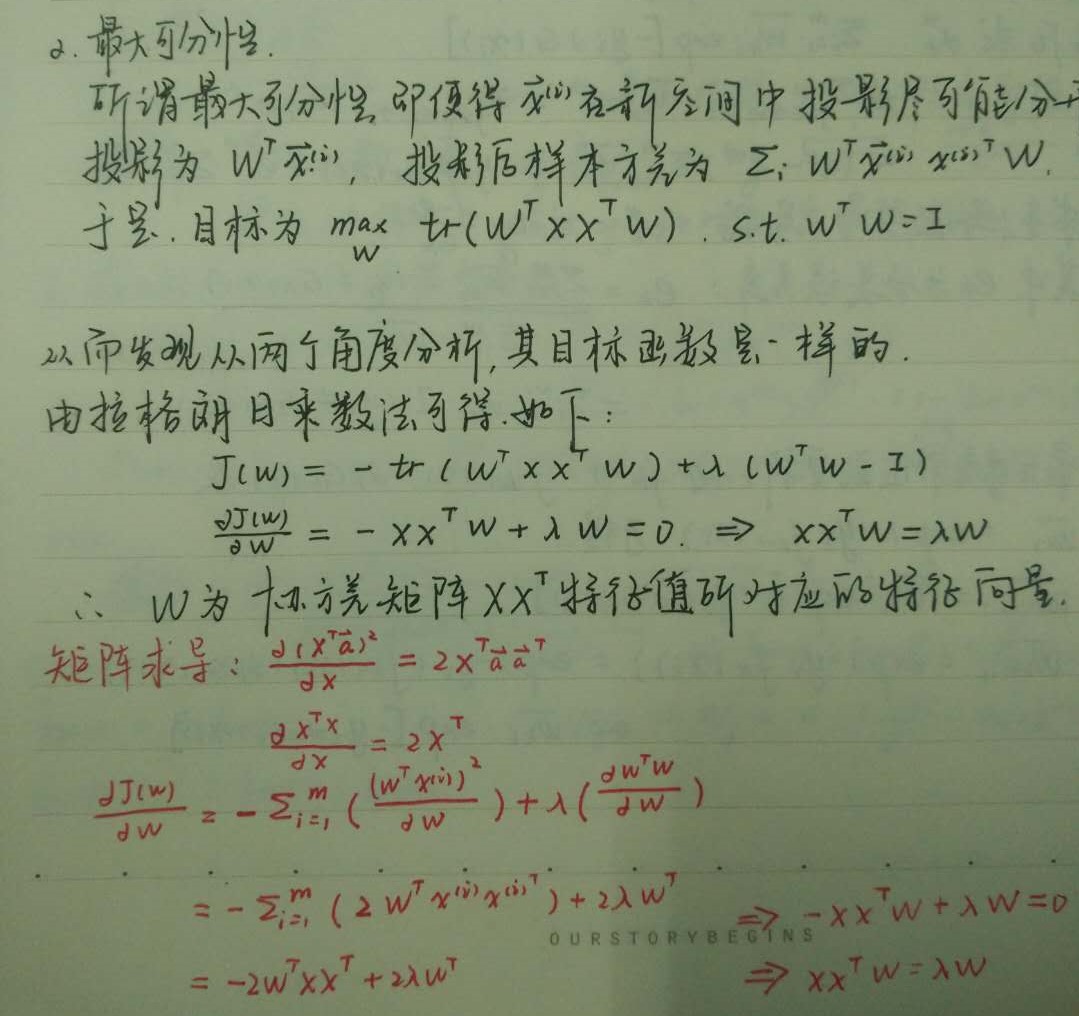 2. 最大可分性.
所谓最大可分性, 即使得 x⃗⁽ⁱ⁾ 在新空间中投影尽可能分开
投影为 Wᵀx⃗⁽ⁱ⁾, 投影后样本方差为 Σᵢ Wᵀx⃗⁽ⁱ⁾x⁽ⁱ⁾ᵀW.
于是. 目标为 max_W tr(WᵀXXᵀW). s.t. WᵀW = I
从而发现从两个角度分析, 其目标函数是一样的.
由拉格朗日乘数法可得. 如下:
J(W) = - tr(WᵀXXᵀW) + λ(WᵀW - I)
∂J(W)/∂W = - XXᵀW + λW = 0. ⇒ XXᵀW = λW
∴ W为协方差矩阵XXᵀ特征值所对应的特征向量.
矩阵求导: ∂(Xᵀa⃗)²/∂X = 2Xᵀa⃗a⃗ᵀ
∂XᵀX/∂X = 2Xᵀ
∂J(W)/∂W = - Σᵢ₌₁ᵐ ((Wᵀx⁽ⁱ⁾)²/∂W) + λ(∂WᵀW/∂W)
= - Σᵢ₌₁ᵐ (2Wᵀx⁽ⁱ⁾x⁽ⁱ⁾ᵀ) + 2λWᵀ ⇒ -XXᵀW + λW = 0
OURSTORYBEGINS
= -2WᵀXXᵀ + 2λWᵀ ⇒ XXᵀW = λW